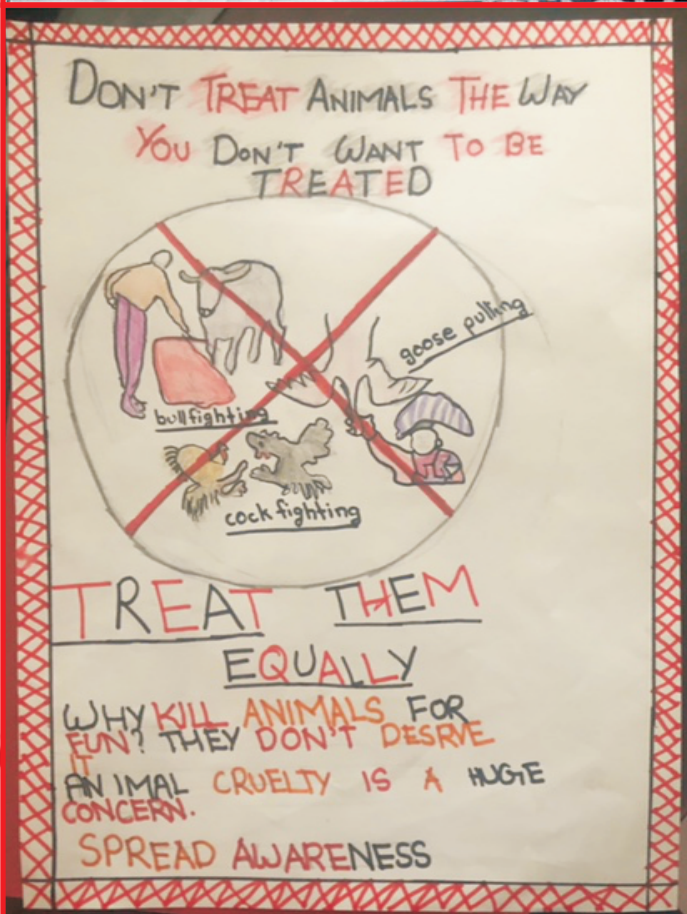 DON'T TREAT ANIMALS THE WAY
YOU DON'T WANT TO BE
TREATED
goose pulling
bullfighting
cock fighting
TREAT THEM
EQUALLY
WHY KILL ANIMALS FOR
FUN? THEY DON'T DESRVE
IT
ANIMAL CRUELTY IS A HUGE
CONCERN.
SPREAD AWARENESS